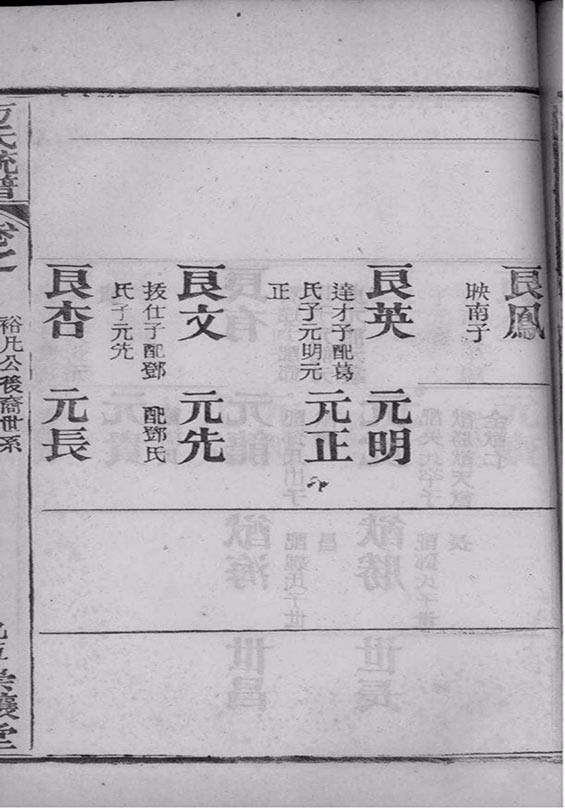 良鳳
映南子
良英
達才子配葛
氏子元明元
正
元明
元正
良文
扳仕子配鄧
氏子元先
元先
配鄧氏
良杏
元長
氏統譜
裕凡公後裔世系